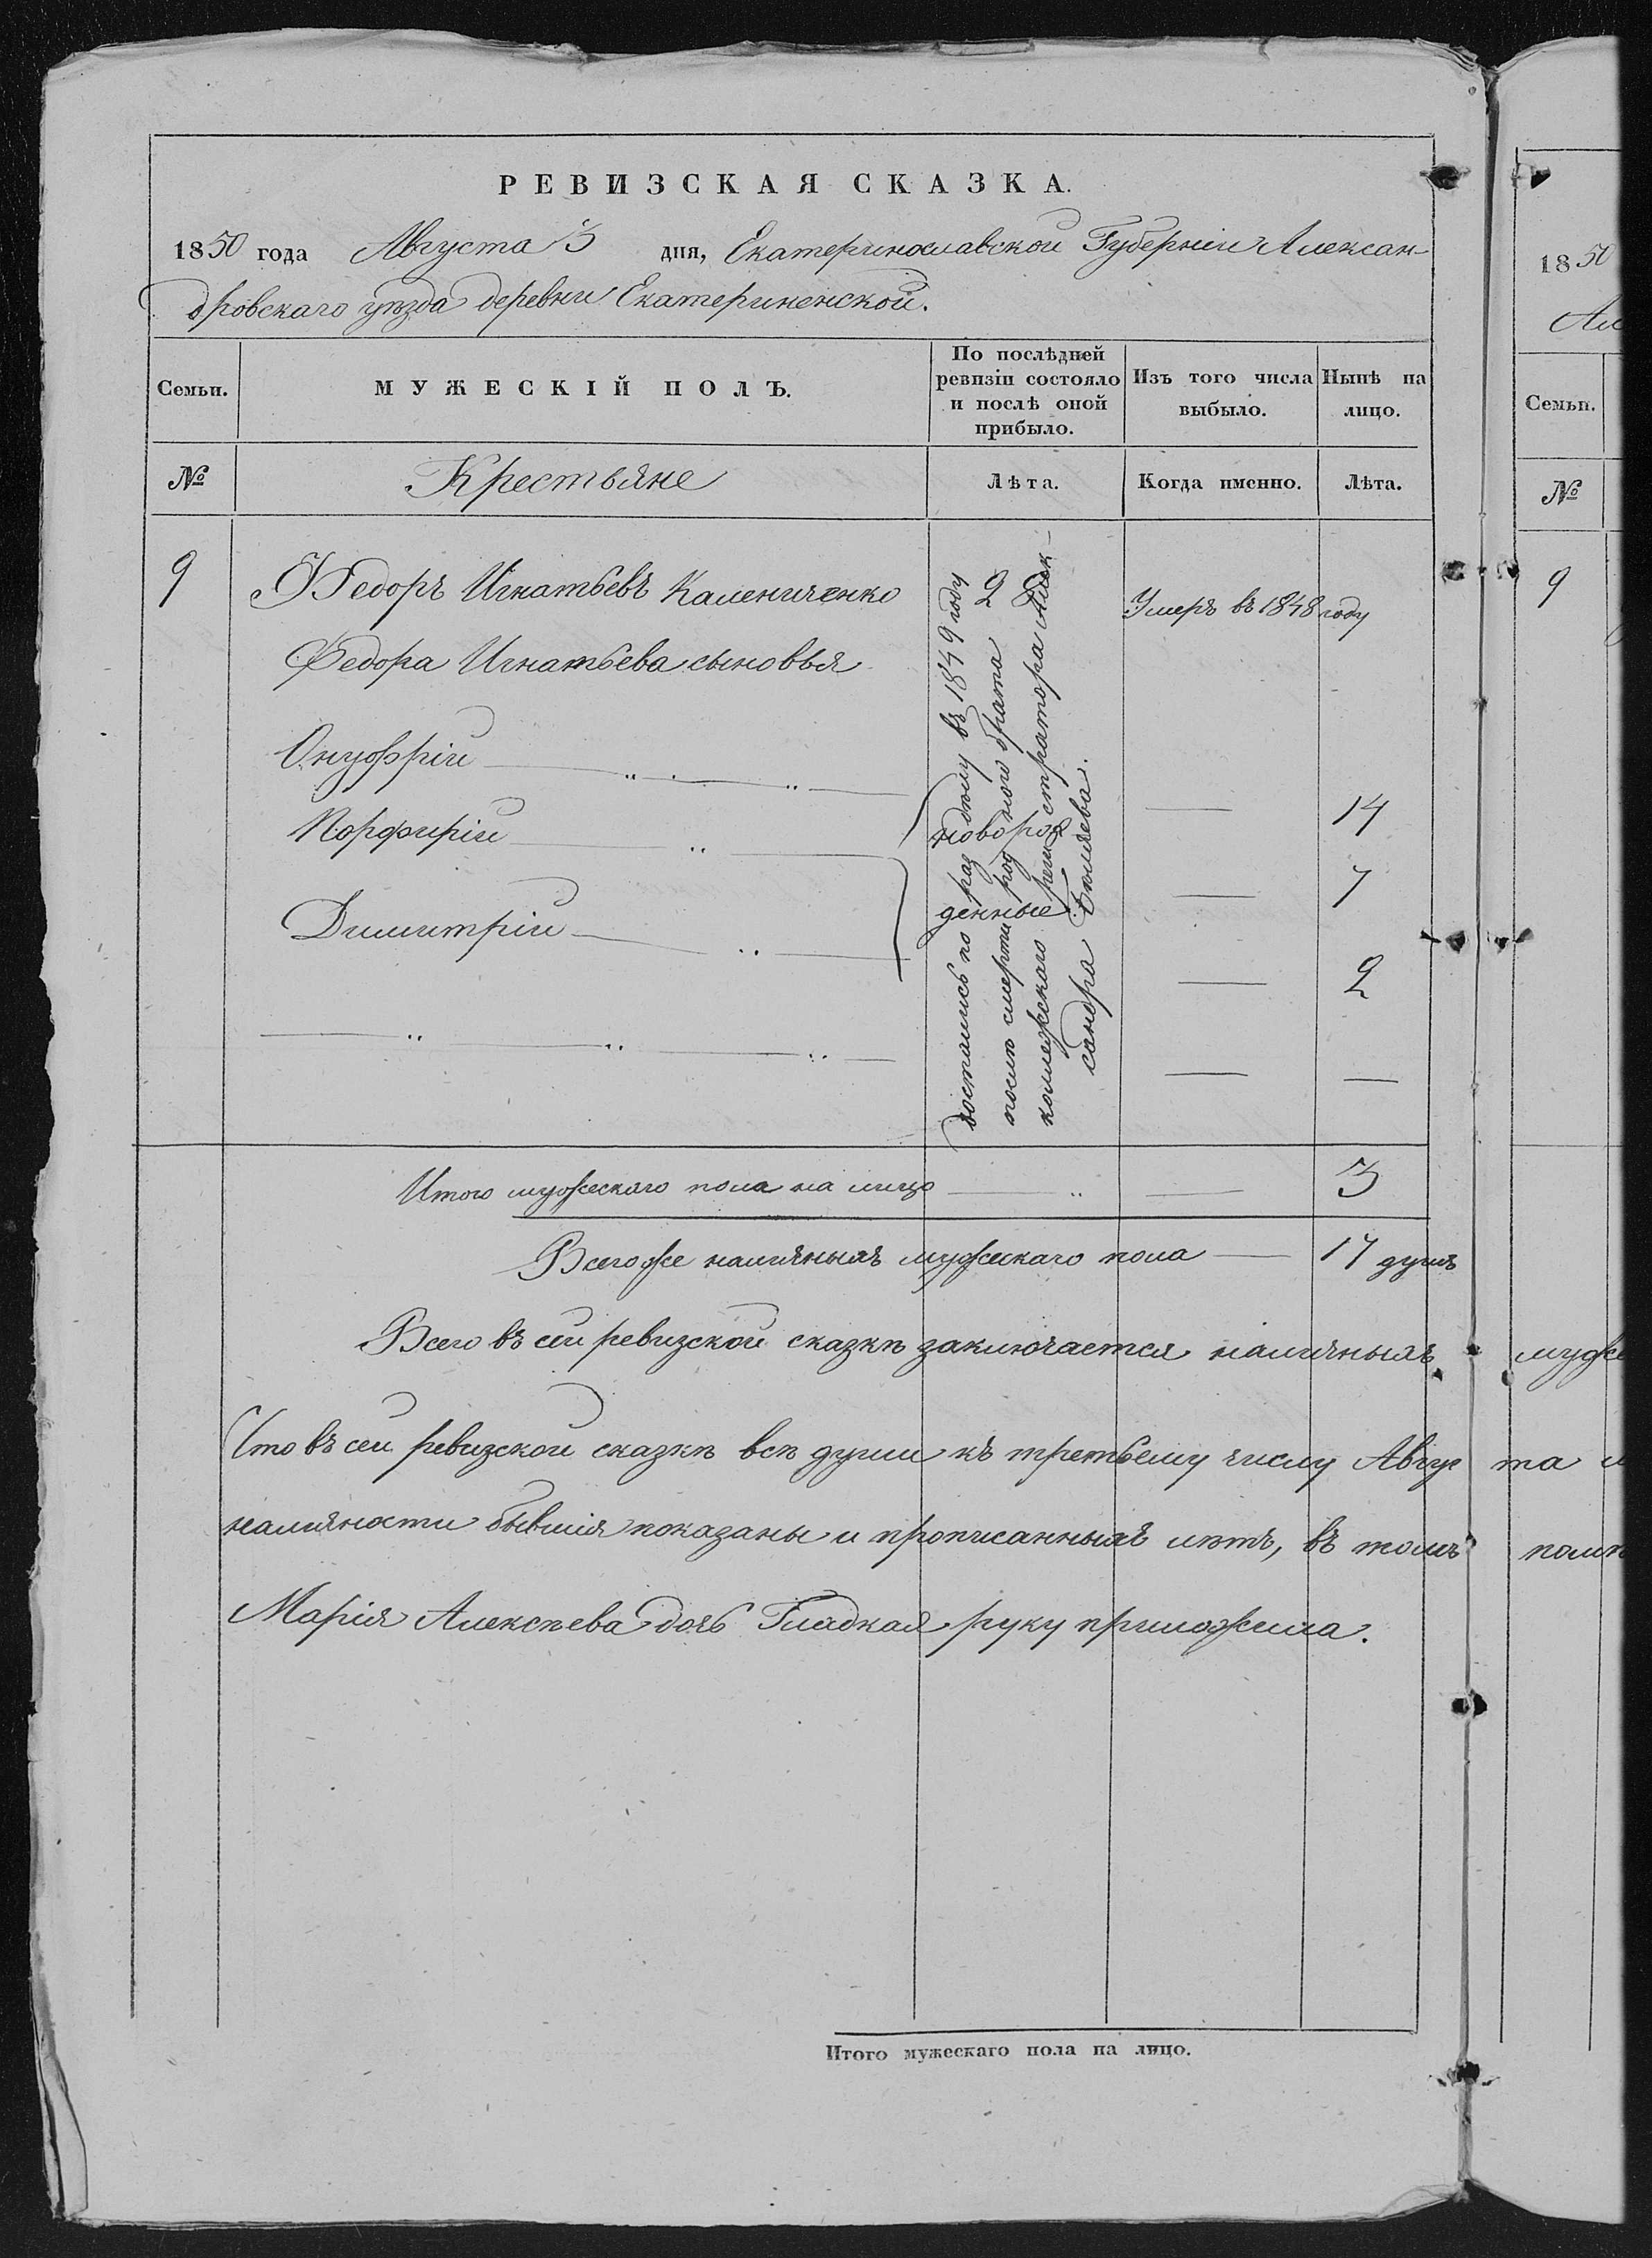 РЕВИЗСКАЯ СКАЗКА.
1850 года Августа 3 дня, Екатеринославской Губерніи Алексан-
дровскаго уѣзда деревни Екатериненской.
Семьи.
МУЖЕСКІЙ ПОЛЪ.
По послѣдней
ревизіи состояло
и послѣ оной
прибыло.
Изъ того числа
выбыло.
Нынѣ на
лицо.
№
Крестьяне
Лѣта.
Когда именно.
Лѣта.
9
Федоръ Игнатьевъ Калениченко
28
Умеръ въ 1848 году
Федора Игнатьева сыновья
Онуфрій
14
Порфирій
новорож
7
Димитрій
денные
2
достались по раздѣлу въ 1849 году
послѣ смерти роднаго брата
коллежскаго регистратора Алек-
сандра Бѣляева.
Итого мужескаго пола на лицо 3
Всего же наличныхъ мужескаго пола 17 душъ
Всего въ сей ревизской сказкѣ заключается наличныхъ муже
Что въ сей ревизской сказкѣ всѣ души къ третьему числу Авгус та
наличности бывшія показаны и прописанныхъ лѣтъ, въ томъ
Марія Алексѣева дочь Гладкая руку приложила.
Итого мужескаго пола на лицо.
1850
Ал
Семьи.
№
9